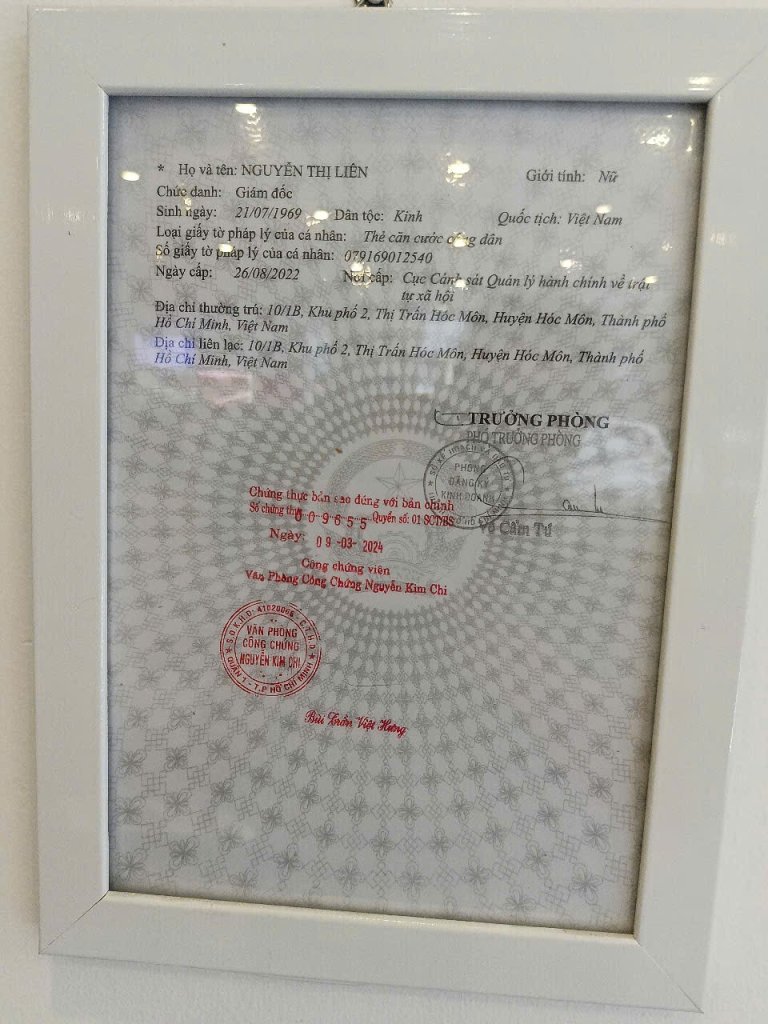 * Họ và tên: NGUYỄN THỊ LIÊN Giới tính: Nữ
Chức danh: Giám đốc
Sinh ngày: 21/07/1969 Dân tộc: Kinh Quốc tịch: Việt Nam
Loại giấy tờ pháp lý của cá nhân: Thẻ căn cước công dân
Số giấy tờ pháp lý của cá nhân: 079169012540
Ngày cấp: 26/08/2022 Nơi cấp: Cục Cảnh sát Quản lý hành chính về trật
tự xã hội
Địa chỉ thường trú: 10/1B, Khu phố 2, Thị Trấn Hóc Môn, Huyện Hóc Môn, Thành phố
Hồ Chí Minh, Việt Nam
Địa chỉ liên lạc: 10/1B, Khu phố 2, Thị Trấn Hóc Môn, Huyện Hóc Môn, Thành phố
Hồ Chí Minh, Việt Nam
TRƯỞNG PHÒNG
PHÓ TRƯỞNG PHÒNG
PHÒNG
ĐĂNG KÝ
KINH DOANH
Võ Cẩm Tú
Chứng thực bản sao đúng với bản chính
Số chứng thực 009655 Quyển số: 01 SCT/BS
Ngày: 09-03-2024
Công chứng viên
Văn Phòng Công Chứng Nguyễn Kim Chi
VĂN PHÒNG
CÔNG CHỨNG
NGUYỄN KIM CHI
QUẬN 1 - T.P HỒ CHÍ MINH
Bùi Trần Việt Hưng